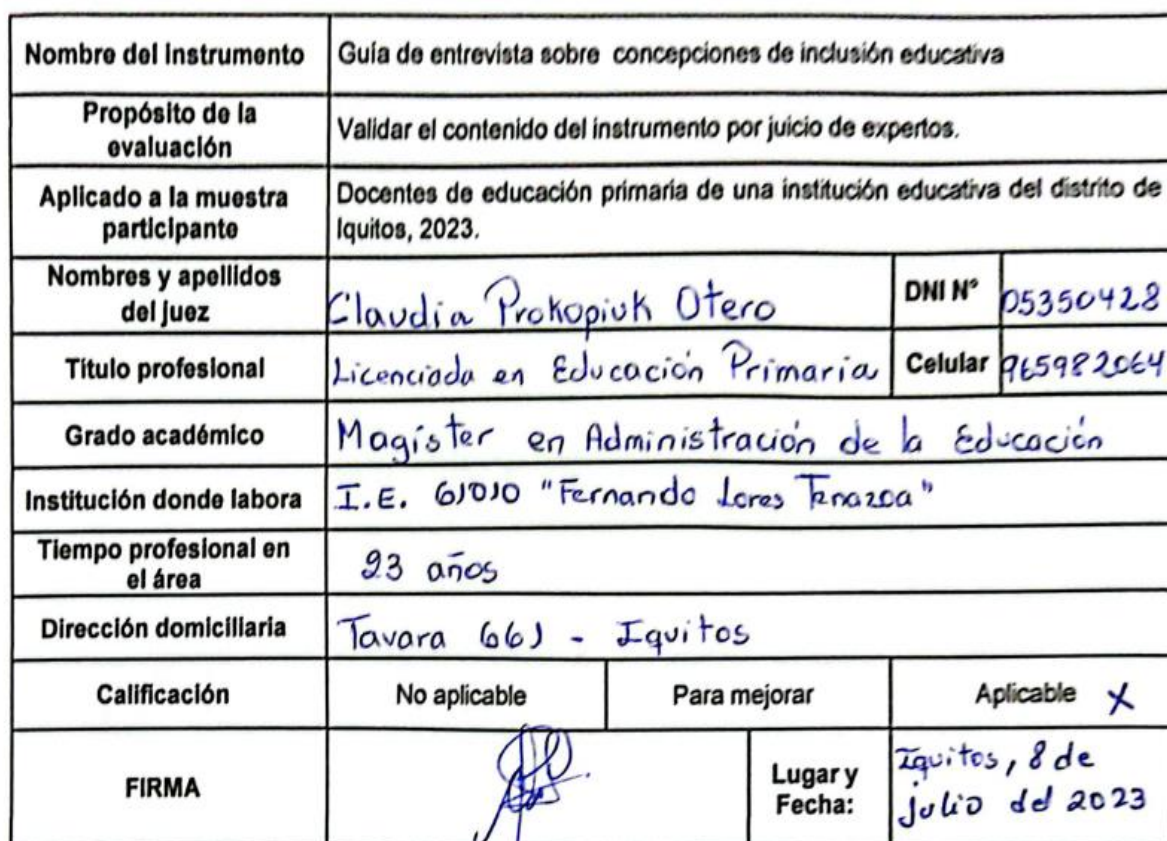 Nombre del Instrumento
Guía de entrevista sobre concepciones de inclusión educativa
Propósito de la
evaluación
Validar el contenido del instrumento por juicio de expertos.
Aplicado a la muestra
participante
Docentes de educación primaria de una institución educativa del distrito de
Iquitos, 2023.
Nombres y apellidos
del juez
Claudia Prokopiuk Otero
DNI N°
05350428
Título profesional
Licenciada en Educación Primaria
Celular
965982064
Grado académico
Magíster en Administración de la Educación
Institución donde labora
I.E. 61010 "Fernando Lores Tenazoa"
Tiempo profesional en
el área
23 años
Dirección domiciliaria
Tavara 661 - Iquitos
Calificación
No aplicable
Para mejorar
Aplicable X
FIRMA
Lugar y
Fecha:
Iquitos, 8 de
julio del 2023